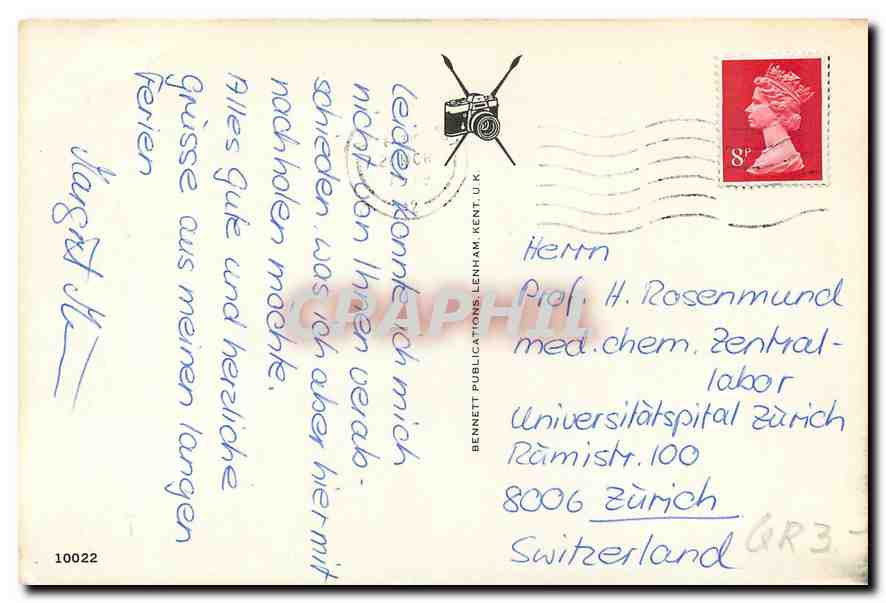 Leider konnte ich mich
nicht von Ihnen verab-
schieden, was ich aber hiermit
nachholen möchte.
Alles Gute und herzliche
Grüsse aus meinen langen
Ferien
Margrit
BENNETT PUBLICATIONS, LENHAM, KENT. U.K.
8P
Herrn
Prof. H. Rosenmund
med. chem. Zentral-
labor
Universitätspital Zürich
Rämistr. 100
8006 Zürich
Switzerland
GR 3.-
10022
CPAPHIL